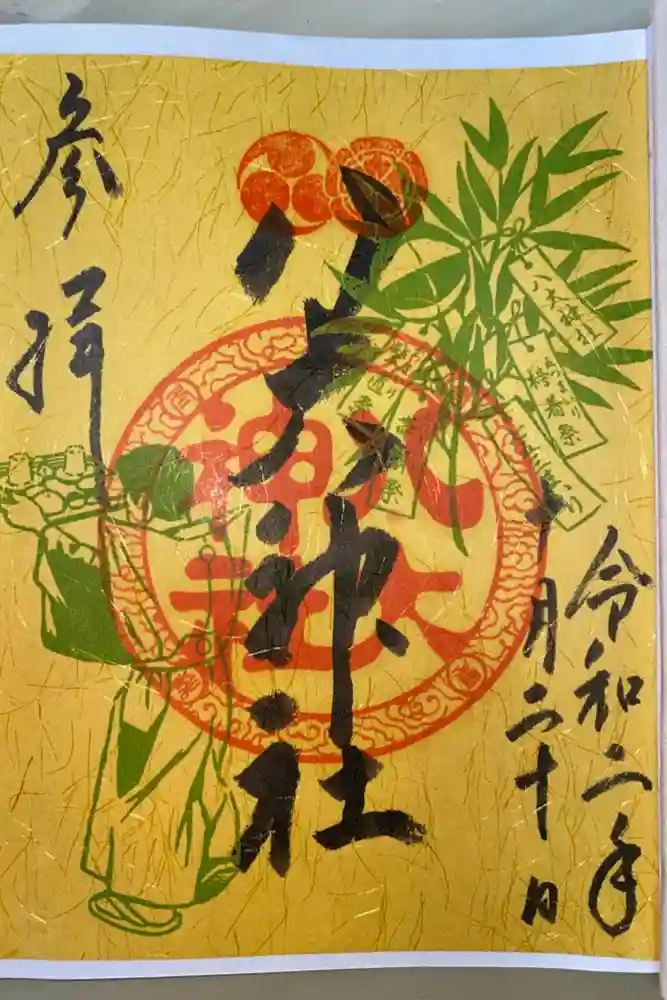 令和二年
月二十日
八大神社
八大
神社
八大神社
参拝